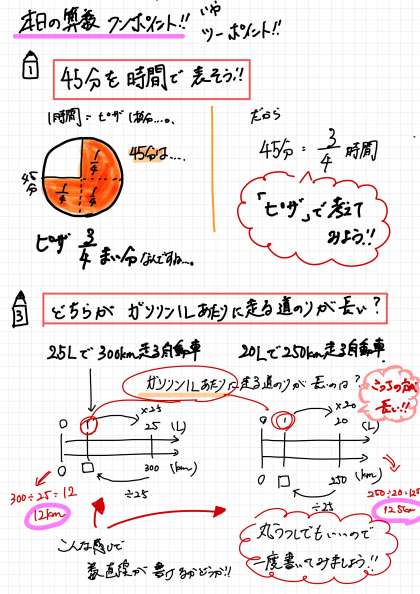 本日の算数 ワンポイント!!
いや
ツーポイント!!
1
45分を時間で表そう!!
1時間 = ピザ1枚分…。
45分は…。
1/4
1/4
1/4
45分
ピザ 3/4 まい分なんですね…。
だから
45分 = 3/4 時間
「ピザ」で考えてみよう!!
3
どちらがガソリン1Lあたりに走る道のりが長い?
25Lで300km走る自動車
20Lで250km走る自動車
ガソリン1Lあたりに走る道のりが長いのは?
こっちの方が長い!!
×25
0 1 25 (L)
0 □ 300 (km)
÷25
300÷25=12
12km
×20
0 1 20 (L)
0 □ 250 (km)
÷25
250÷20=12.5
12.5km
こんな感じで
数直線が書けるかどうか!!
丸うつしでもいいので
一度書いてみましょう!!